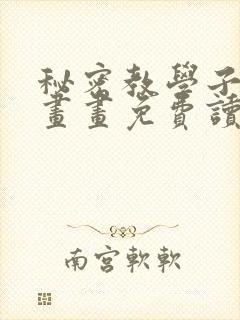 秘密教學子
畫畫免費讀
南宮軟軟